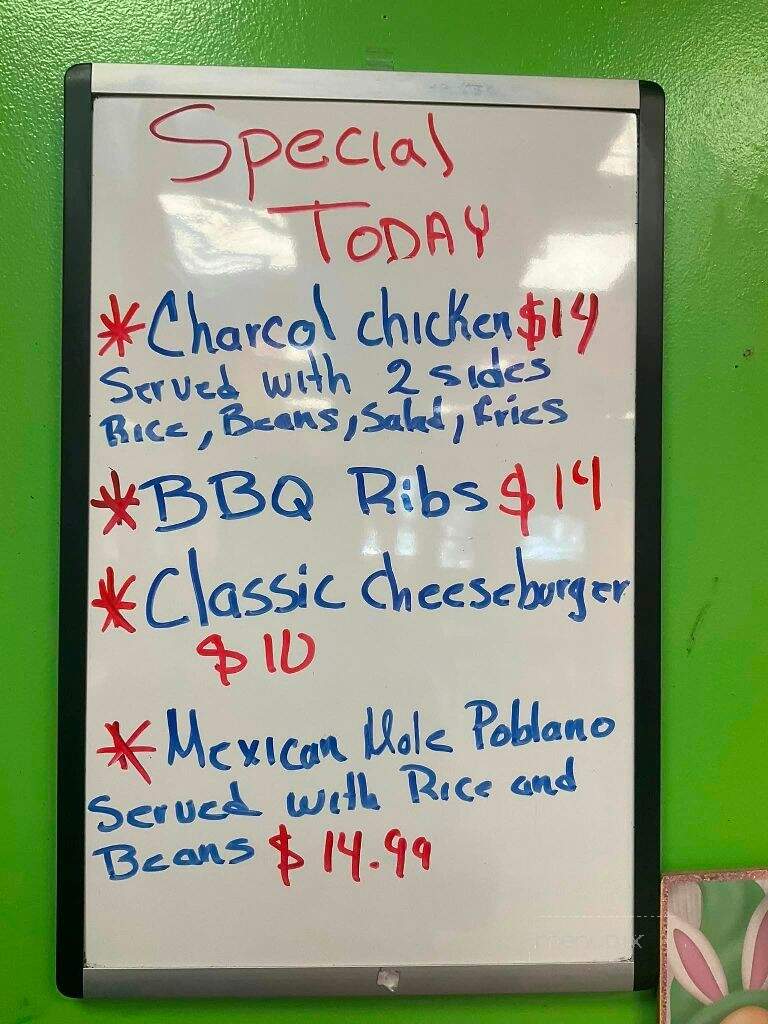 Special
TODAY
*Charcol chicken $14
Served with 2 sides
Rice, Beans, Salad, fries
*BBQ Ribs $14
*Classic cheeseburger
$10
*Mexican Mole Poblano
Served with Rice and
Beans $14.99